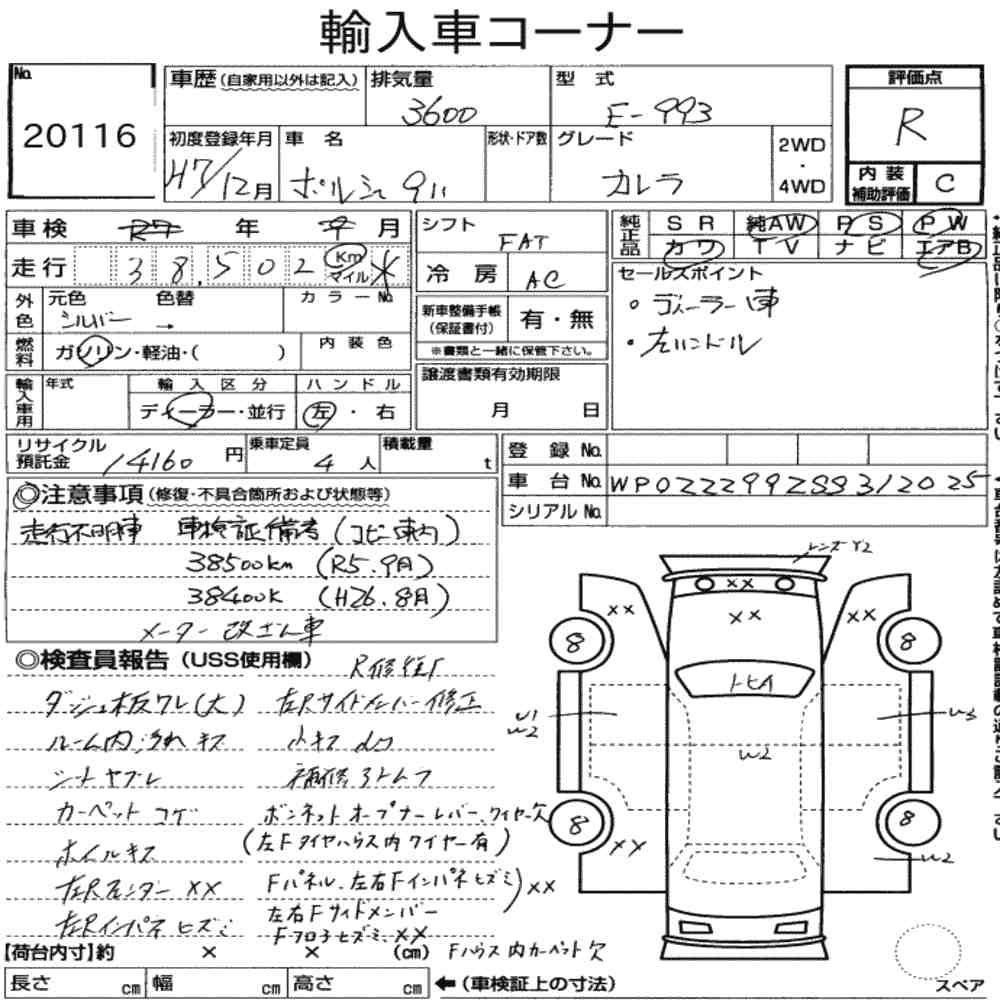 輸入車コーナー
No. 20116
車歴 (自家用以外は記入)
排気量 3600
型式 E-993
評価点 R
初度登録年月 H7/12月
車名 ポルシェ 911
形状・ドア数
グレード カレラ
2WD・4WD
内装補助評価 C
車検 年 月
シフト FAT
純正品 SR 純AW PS PW
カワ TV ナビ エアB
走行 38,502 Km マイル *
冷房 AC
セールスポイント
・ディーラー車
・左ハンドル
外色 元色 シルバー 色替 → カラーNo.
新車整備手帳(保証書付) 有・無
※書類と一緒に保管下さい。
燃料 ガソリン・軽油・( ) 内装色
譲渡書類有効期限
月 日
輸入車用 年式 輸入区分 ハンドル
ディーラー・並行 左・右
リサイクル預託金 14160円 乗車定員 4人 積載量 t
登録No.
車台No. WP0ZZZ99ZSS312025
シリアルNo.
◎注意事項 (修復・不具合箇所および状態等)
走行不明車 車検証備考(コピー車内)
38500km (R5.9月)
38400K (H26.8月)
メーター改ざん車
◎検査員報告 (USS使用欄)
R修継ぐ
ダッシュ板ワレ(大) 左Rサイドメンバー修正
ルーム内汚れキズ 小キズ
シートヤブレ 補修
カーペットコゲ ボンネットオープナーレバー、ワイヤー欠
ホイルキズ (左Fタイヤハウス内ワイヤー有)
左Rフェンダー XX Fパネル、左右Fインパネヒズミ XX
左Rインパネヒズミ 左右Fサイドメンバー
Fフロアヒズミ、XX
【荷台内寸】約 × × (cm) Fハウス内カーペット欠
長さ cm 幅 cm 高さ cm ←(車検証上の寸法)
レンズY2
XX
XX XX XX
8 8
トヒイ
W1
W2
W3
W2
8 8
XX
W2
スペア